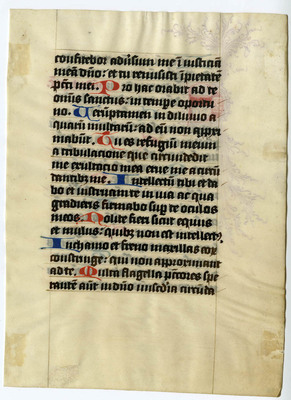 confitebor adũsum me ĩ iustitiã
meã dño: et tu remisisti ĩpietatẽ
pcti mei. Pro hac orabit ad te
omĩs sanctus: in tempe oportu
no. Verũptamen in diluvio a
quarũ multarũ: ad eũ non appxi
mabũt. Tu es refugiũ meũ
a tribulacione que circũdedit
me exultatio mea erue me a circũ
dantibz me. Intellectũ tibi et da
bo et instruam te in via ac qua
gradieris firmabo sup te oculos
meos. Nolite fieri sicut equus
et mulus: quibz non est intellectꝯ.
In chamo et freno maxillas eoꝝ
constringe: qui non approximant
ad te. Multa flagella pctores spe
rantẽ aũt in dño miscdia circũda